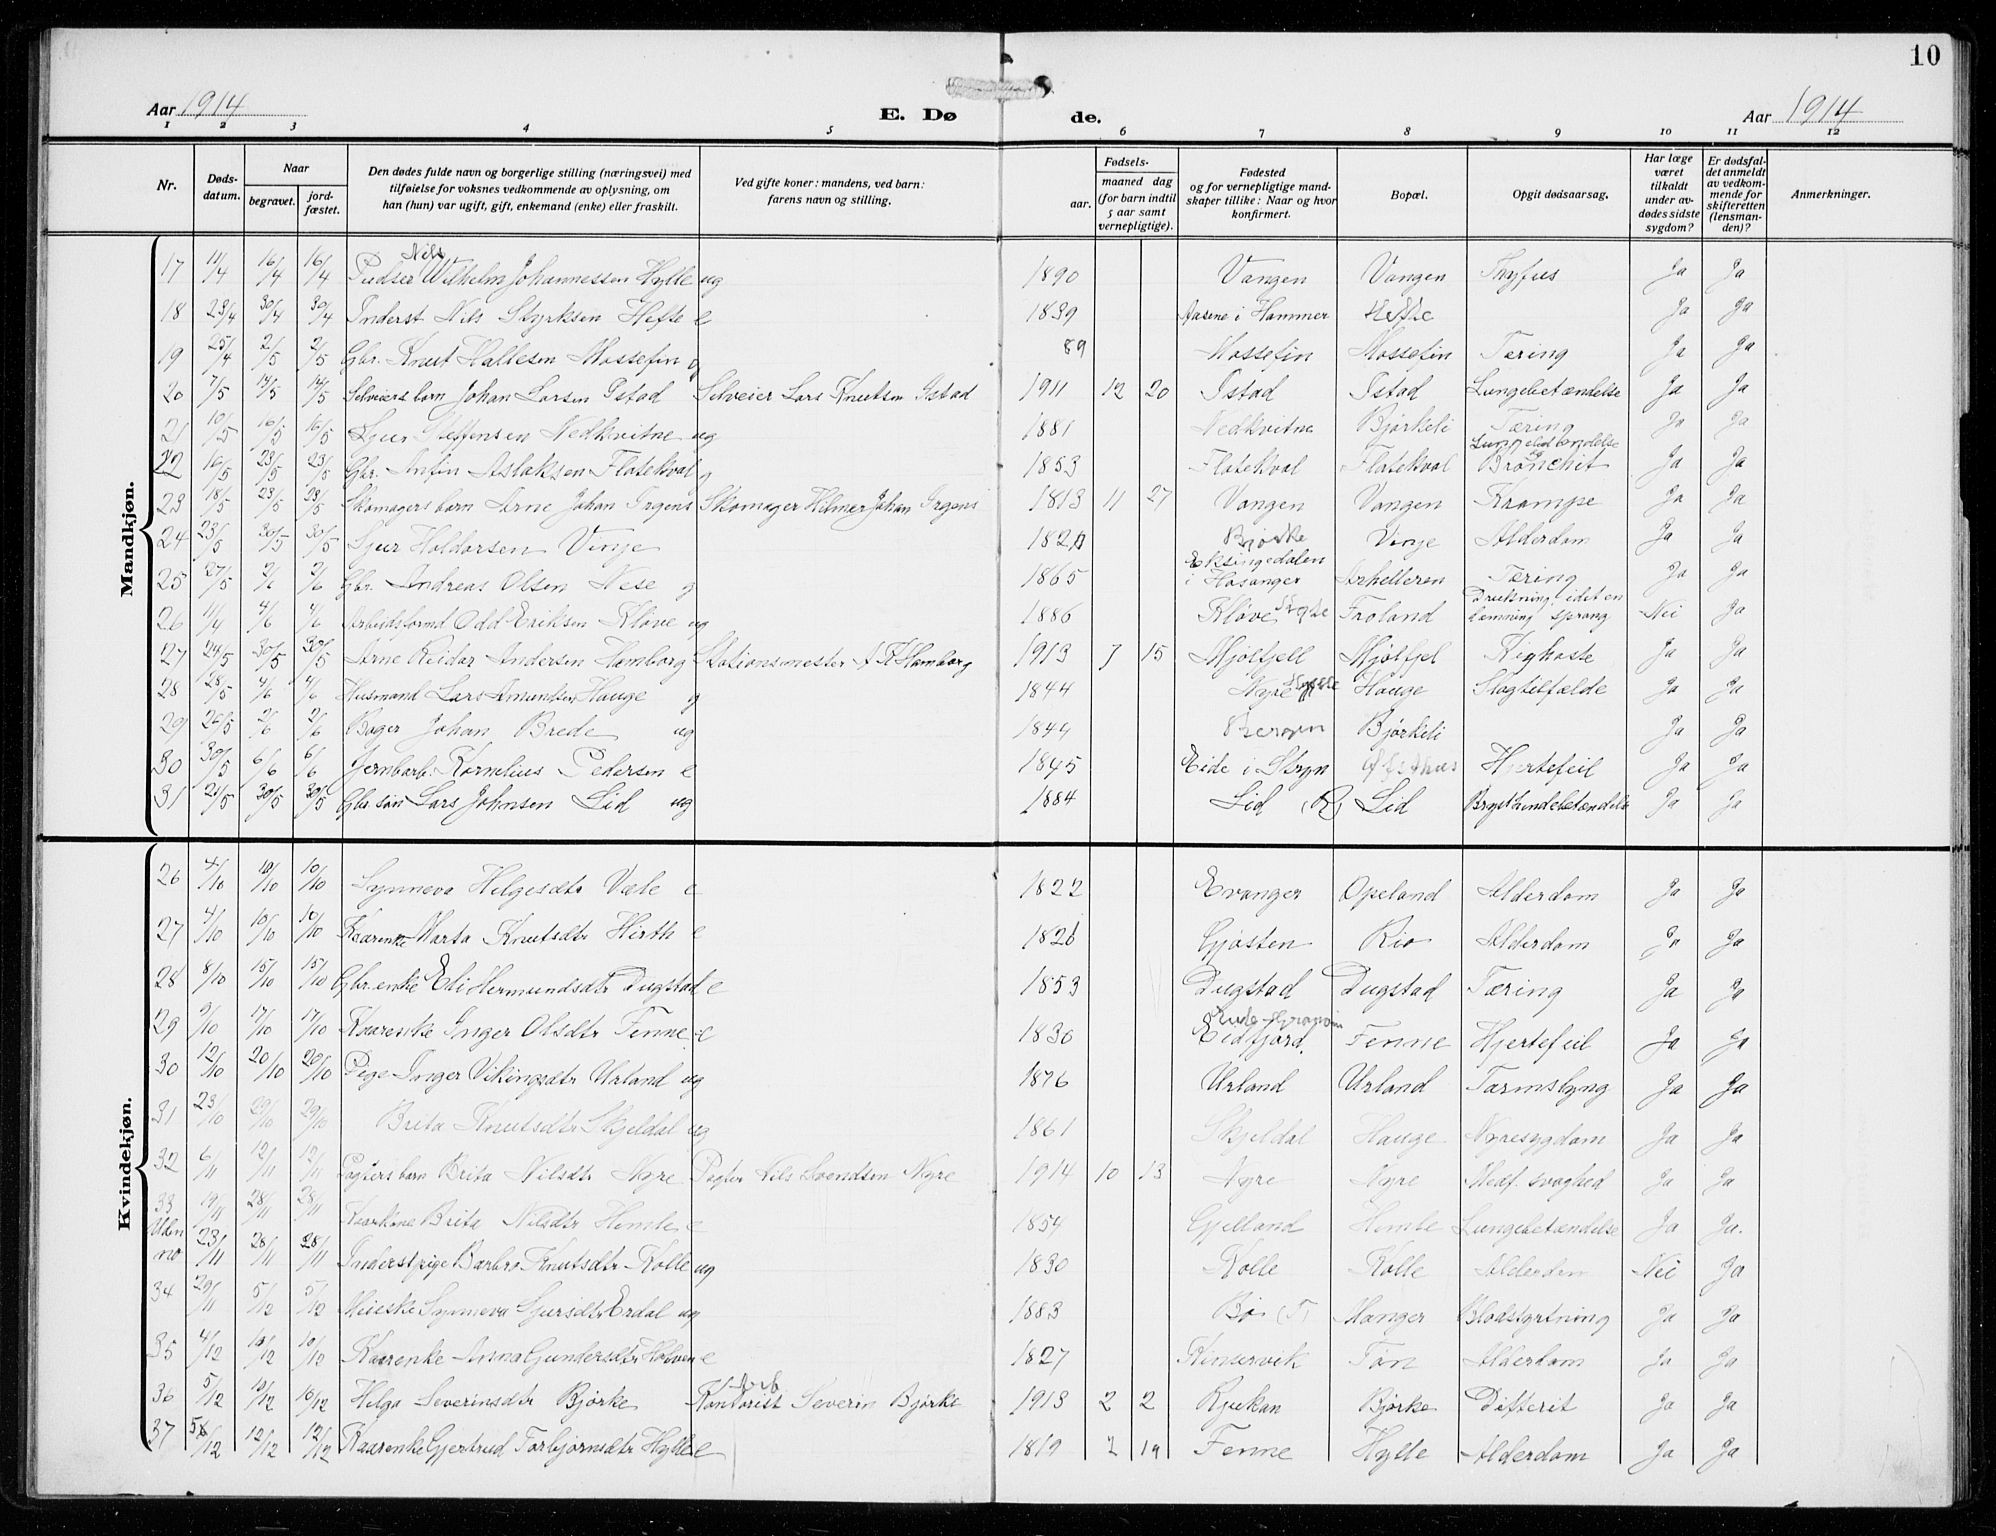 10
Aar 1914
E. Døde.
Aar 1914
1 2 3 4 5 6 7 8 9 10 11 12
Nr.
Døds-datum.
Naar
begravet.
jord-fæstet.
Den dødes fulde navn og borgerlige stilling (næringsvei) med
tilføielse for voksnes vedkommende av oplysning, om
han (hun) var ugift, gift, enkemand (enke) eller fraskilt.
Ved gifte koner: mandens, ved barn:
farens navn og stilling.
Fødsels-
aar.
maaned dag
(for barn indtil
5 aar samt
vernepligtige).
Fødested
og for vernepligtige mand-
skaper tillike: Naar og hvor
konfirmert.
Bopæl.
Opgit dødsaarsag.
Har læge
været
tilkaldt
under av-
dødes sidste
sygdom?
Er dødsfal-
det anmeldt
av vedkom-
mende for
skifteretten
(lensman-
den)?
Anmerkninger.
Mandkjøn.
17 11/4 16/4 16/4 Pudser Nils Wilhelm Johannessen Hylle ug 1890 Vangen Vangen Thyfus Ja Ja
18 23/4 30/4 30/4 Inderst Nils Styrksen Hefte e 1839 Aasene i Hammer Hefte Ja Ja
19 25/4 2/5 2/5 Gbr. Knut Hallesen Mossefin g 89 Mossefin Mossefin Tæring Ja Ja
20 7/5 14/5 14/5 Selveiersbarn Johan Larsen Istad Selveier Lars Knutsen Istad 1911 12 20 Istad Istad Lungebetændelse Ja Ja
21 10/5 16/5 16/5 Sjur Steffensen Nedkvitne ug 1881 Nedkvitne Bjørkeli Tæring Ja Ja
22 16/5 23/5 23/5 Gbr. Anfin Aslaksen Flatekval g 1853 Flatekval Flatekval Lungebetændelse og Bronchit Ja Ja
23 18/5 23/5 23/5 Skomagersbarn Arne Johan Irgens Skomager Helmer Johan Irgens 1913 11 27 Vangen Vangen Krampe Ja Ja
24 23/5 30/5 30/5 Sjur Holdorsen Vinje Bjørke Vinje Alderdom Ja Ja
25 27/5 2/6 2/6 Gbr. Andreas Olsen Nese g 1865 Eksingedalen i Hosanger Arhelleren Tæring Ja Ja
26 11/4 4/6 4/6 Arbeidsformd Odd Eriksen Kløve ug 1886 Kløve Froland Drukning idet en dæmning sprang Nei Ja
27 24/5 30/5 30/5 Arne Reidar Andersen Hamborg Stationsmester A Hamborg 1913 7 15 Mjølfjell Mjølfjel Kighoste Ja Ja
28 28/5 4/6 4/6 Husmand Lars Amundsen Hauge g 1844 Nyre Hauge Slagtilfælde Ja Ja
29 26/5 2/6 2/6 Bager Johan Brede ug 1844 Bergen Bjørkeli Ja Ja
30 30/5 6/6 6/6 Jernbarb. Kornelius Pedersen e 1845 Eide i Stryn Hjertefeil Ja Ja
31 21/5 30/5 30/5 Gbr. søn Lars Johnsen Lid ug 1884 Lid (R) Lid Brysthindebetændelse Ja Ja
Kvindekjøn.
26 4/10 10/10 10/10 Synneva Helgesdtr Væle e 1822 Evanger Opeland Alderdom Ja Ja
27 4/10 10/10 10/10 Kaarenke Marta Knutsdtr Hirth e 1826 Gjøsten Rio Alderdom Ja Ja
28 8/10 15/10 15/10 Gbr. enke Eli Hermundsdtr Dugstad e 1853 Dugstad Dugstad Tæring Ja Ja
29 9/10 17/10 17/10 Kaarenke Inger Olsdtr Fenne e 1830 Eidfjord. Fenne Hjertefeil Ja Ja
30 12/10 20/10 20/10 Pige Inger Vikingsdtr Urland ug 1876 Urland Urland Tarmslyng Ja Ja
31 23/10 29/10 29/10 Brita Knutsdtr Skjeldal ug 1861 Skjeldal Hauge Nyresygdom Ja Ja
32 6/11 12/11 12/11 Pagtersbarn Brita Nilsdtr Nyre Pagter Nils Svendsen Nyre 1914 10 13 Nyre Nyre Medf. svaghed Ja Ja
33 19/11 28/11 28/11 Kaarkone Brita Nilsdtr Himle e 1854 Gjelland Himle Lungebetændelse Ja Ja.
Uden no 23/11 28/11 28/11 Inderstpige Barbro Knutsdtr Kolle ug 1830 Kolle Kolle Alderdom Nei Ja
34 29/11 5/12 5/12 Synneva Sjursdtr Erdal ug 1883 Bø (T) Manger Blodstyrtning Ja Ja
35 4/12 10/12 10/12 Kaarenke Anna Gundersdtr Holven e 1827 Kinservik Tøn Alderdom Ja Ja
36 5/12 10/12 10/12 Helga Severinsdtr Bjørke Kontorist Severin Bjørke 1913 2 2 Rjukan Bjørke Difterit Ja Ja
37 5/12 12/12 12/12 Kaarenke Gjertrud Torbjørnsdtr Hylle e 1819 2 19 Fenne Hylle Alderdom Ja Ja